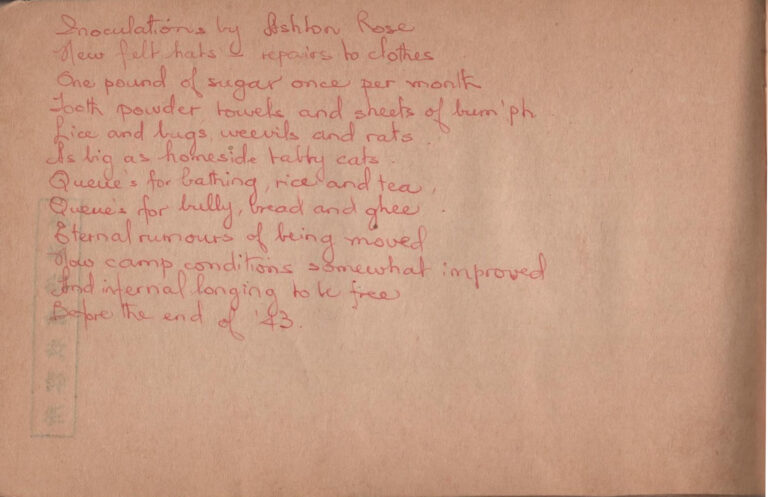 Inoculations by Ashton Rose
New felt hats – repairs to clothes
One pound of sugar once per month
Tooth powder towels and sheets of bum'ph
Lice and bugs, weevils and rats.
As big as homeside tabby cats.
Queue's for bathing, rice and tea,
Queue's for bully, bread and ghee.
Eternal rumours of being moved
Now camp conditions somewhat improved
And infernal longing to be free
Before the end of '43.